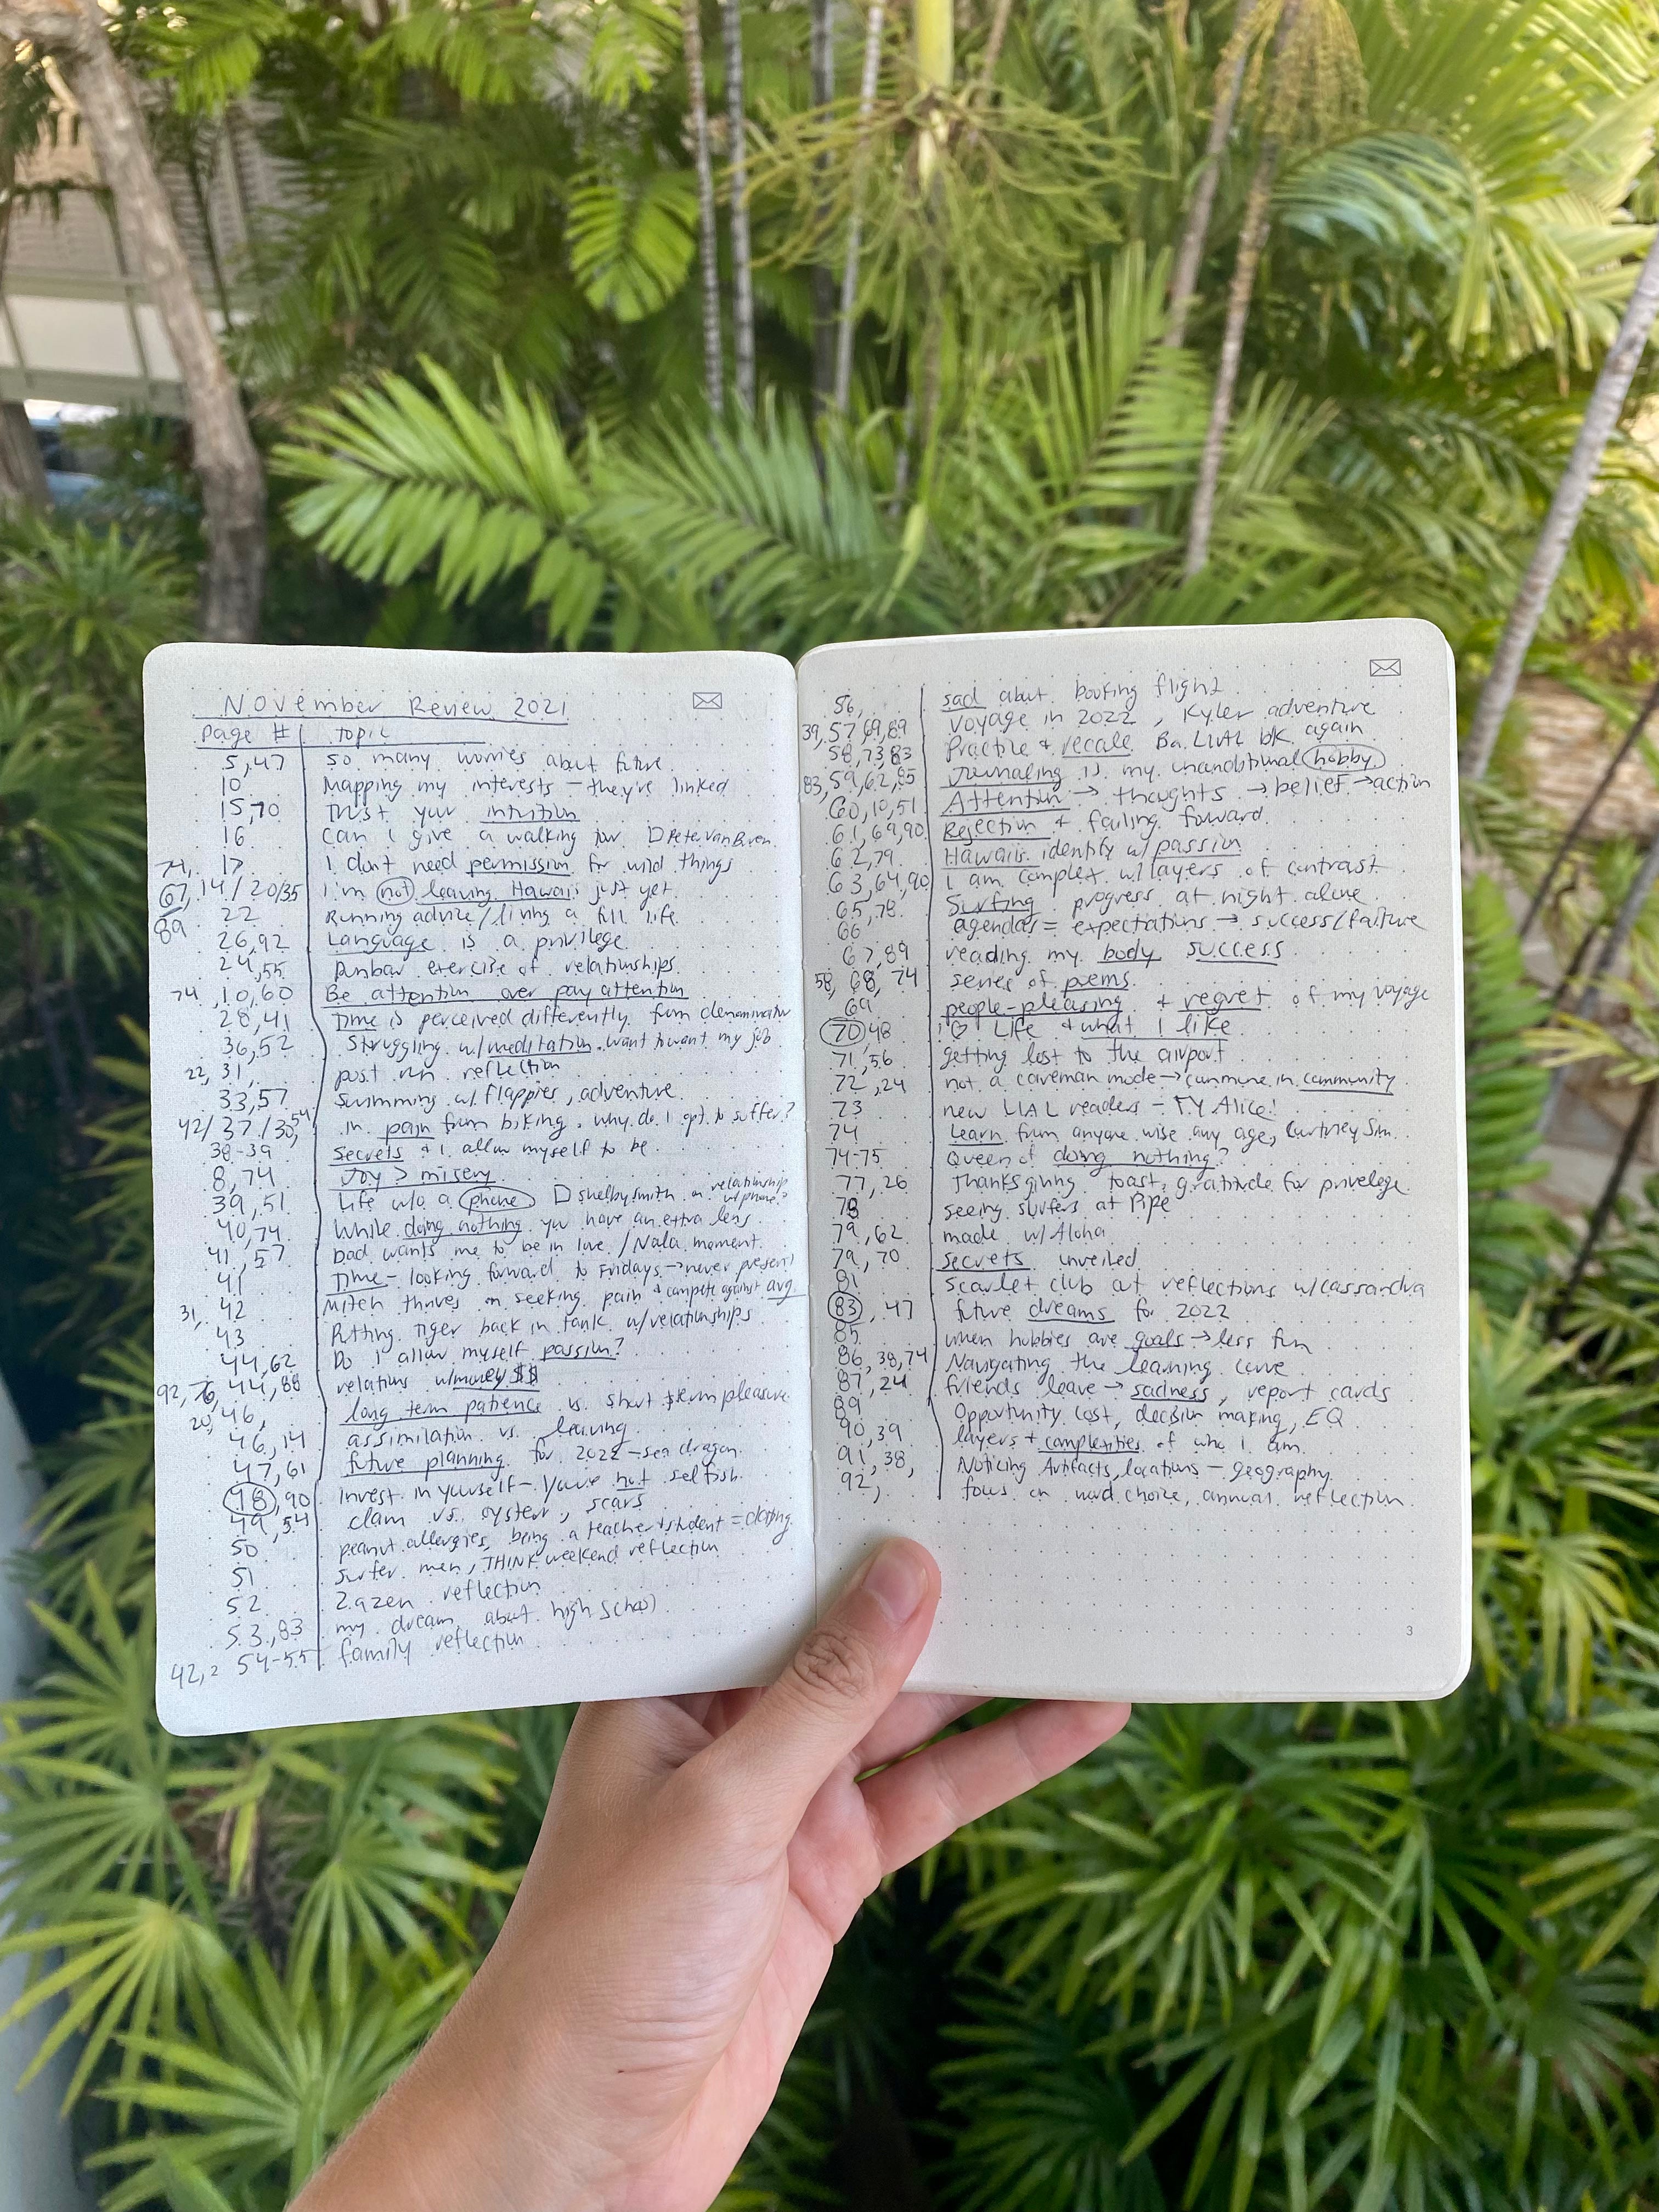 November Review 2021
Page # topic
5,47 So many worries about future
10 Mapping my interests – they're linked
15,70 Trust your intuition
16 Can I give a walking tour □ Peter Van Buren
74, 17 I don't need permission for wild things
67, 14/20/35 I'm not leaving Hawaii just yet
89 22 Running advice/living a full life
26,92 Language is a privilege
24,55 Dunbar exercise of relationships
74, 10,60 Be attention over pay attention
28,41 Time is perceived differently from denominator
36,52 Struggling w/meditation. want to want my job
22, 31, post run reflection
33,57 Swimming w/ flappies, adventure
42/37/30,54 in pain from biking. why do I opt to suffer?
38-39 Secrets & I allow myself to be
8,74 Joy > misery
39,51 Life w/o a phone □ Shelby Smith on relationship w/phone?
40,74 While doing nothing you have an extra lens
41,57 bad wants me to be in love/Nala moment
41 Time – looking forward to Fridays → never present!
31, 42 Mitch thrives on seeking pain & compete against avg
43 Putting Tiger back in tank w/relationships
44,62 Do I allow myself passion?
92, 76, 44,88 relations w/money $$
20, 46, long term patience vs. short term pleasure
46,14 assimilation vs. leaving
47,61 future planning for 2022 – sea dragon
48,90 Invest in yourself – You're not selfish
49,54 clam vs. oyster, scars
50 peanut allergies, being a teacher & student =
51 Surfer men, THINK weekend reflection
52 Zazen reflection
53,83 my dream about high school
42, 54-55 family reflection
56, sad about booking flight
39,57,69,89 Voyage in 2022, Kyler adventure
58,73,83 Practice & recale Ba. LIAL bk again
83,59,62,85 Journaling is my unconditional hobby
60,10,51 Attention → thoughts → belief → action
61,69,90 Rejection & failing forward
62,79 Hawaii identify w/passion
63,64,90 I am complex w/layers of contrast
65,78 Surfing progress at night alone
66 agendas = expectations → success/failure
67,89 reading my body success
58, 68, 74 series of poems
69 people-pleasing & regret of my voyage
70,48 I ♡ Life & what I like
71,56 getting lost to the airport
72,24 not a caveman mode → commune in community
73 new LIAL readers – TY Alice!
74 Learn from anyone wise any age, Courtney Sim
74-75 Queen of doing nothing?
77,26 Thanksgiving toast, gratitude for privelege
78 seeing surfers at Pipe
79,62 made w/Aloha
79,70 secrets unveiled
81 Scarlet club art reflections w/cassandra
83,47 future dreams for 2022
85 when hobbies are goals → less fun
86,38,74 Navigating the learning curve
87,24 friends leave → sadness, report cards
89 Opportunity cost, decision making, EQ
90,39 layers + complexities of who I am
91,38, Noticing Artifacts, locations – geography
92, focus on word choice, annual reflection
3